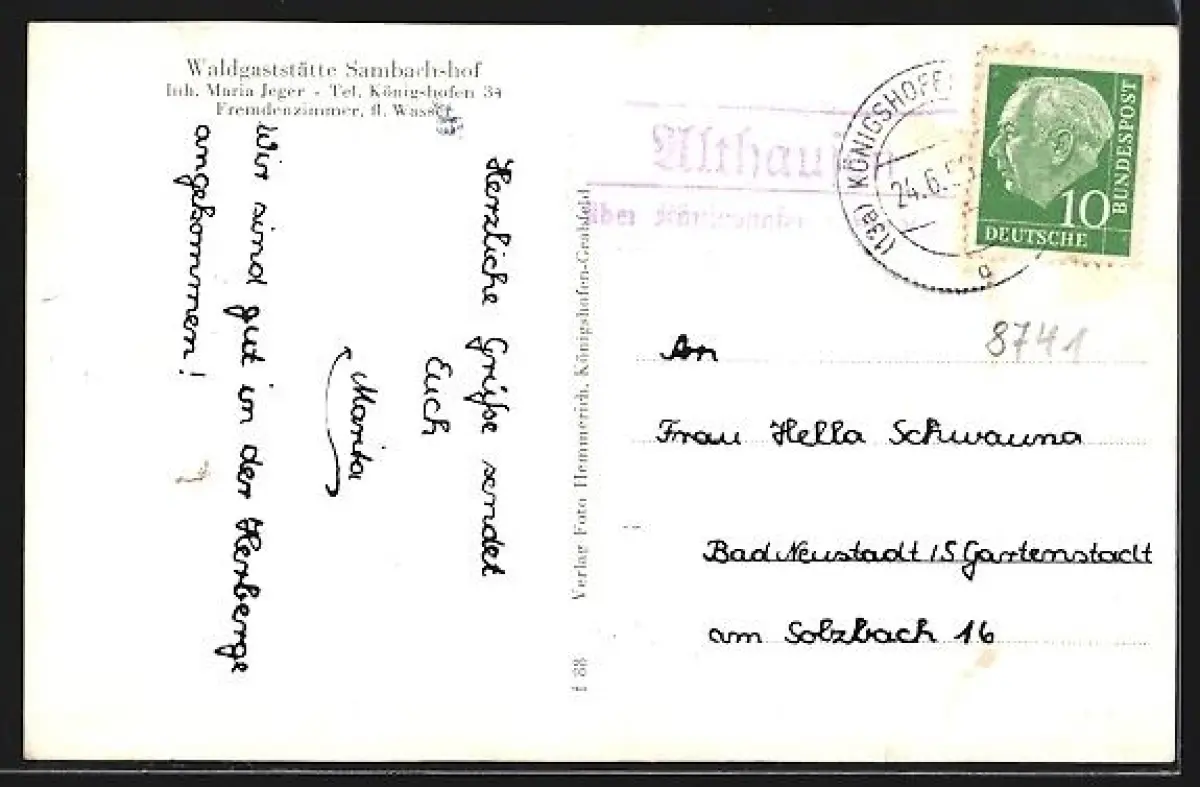 Waldgaststätte Sambachshof
Inh. Maria Jeger - Tel. Königshofen 34
Fremdenzimmer, fl. Wasser
Herzliche Grüße sendet
Euch
Marita
Wir sind gut in der Herberge
angekommen!
Verlag Foto Hemmerich, Königshofen-Grabfeld
f 88
Althausen
über Königshofen
(13a) KÖNIGSHOFEN
24.6.5
a
10
DEUTSCHE
BUNDESPOST
8741
An
Frau Hella Schwauna
Bad Neustadt /S Gartenstadt
am Solzbach 16